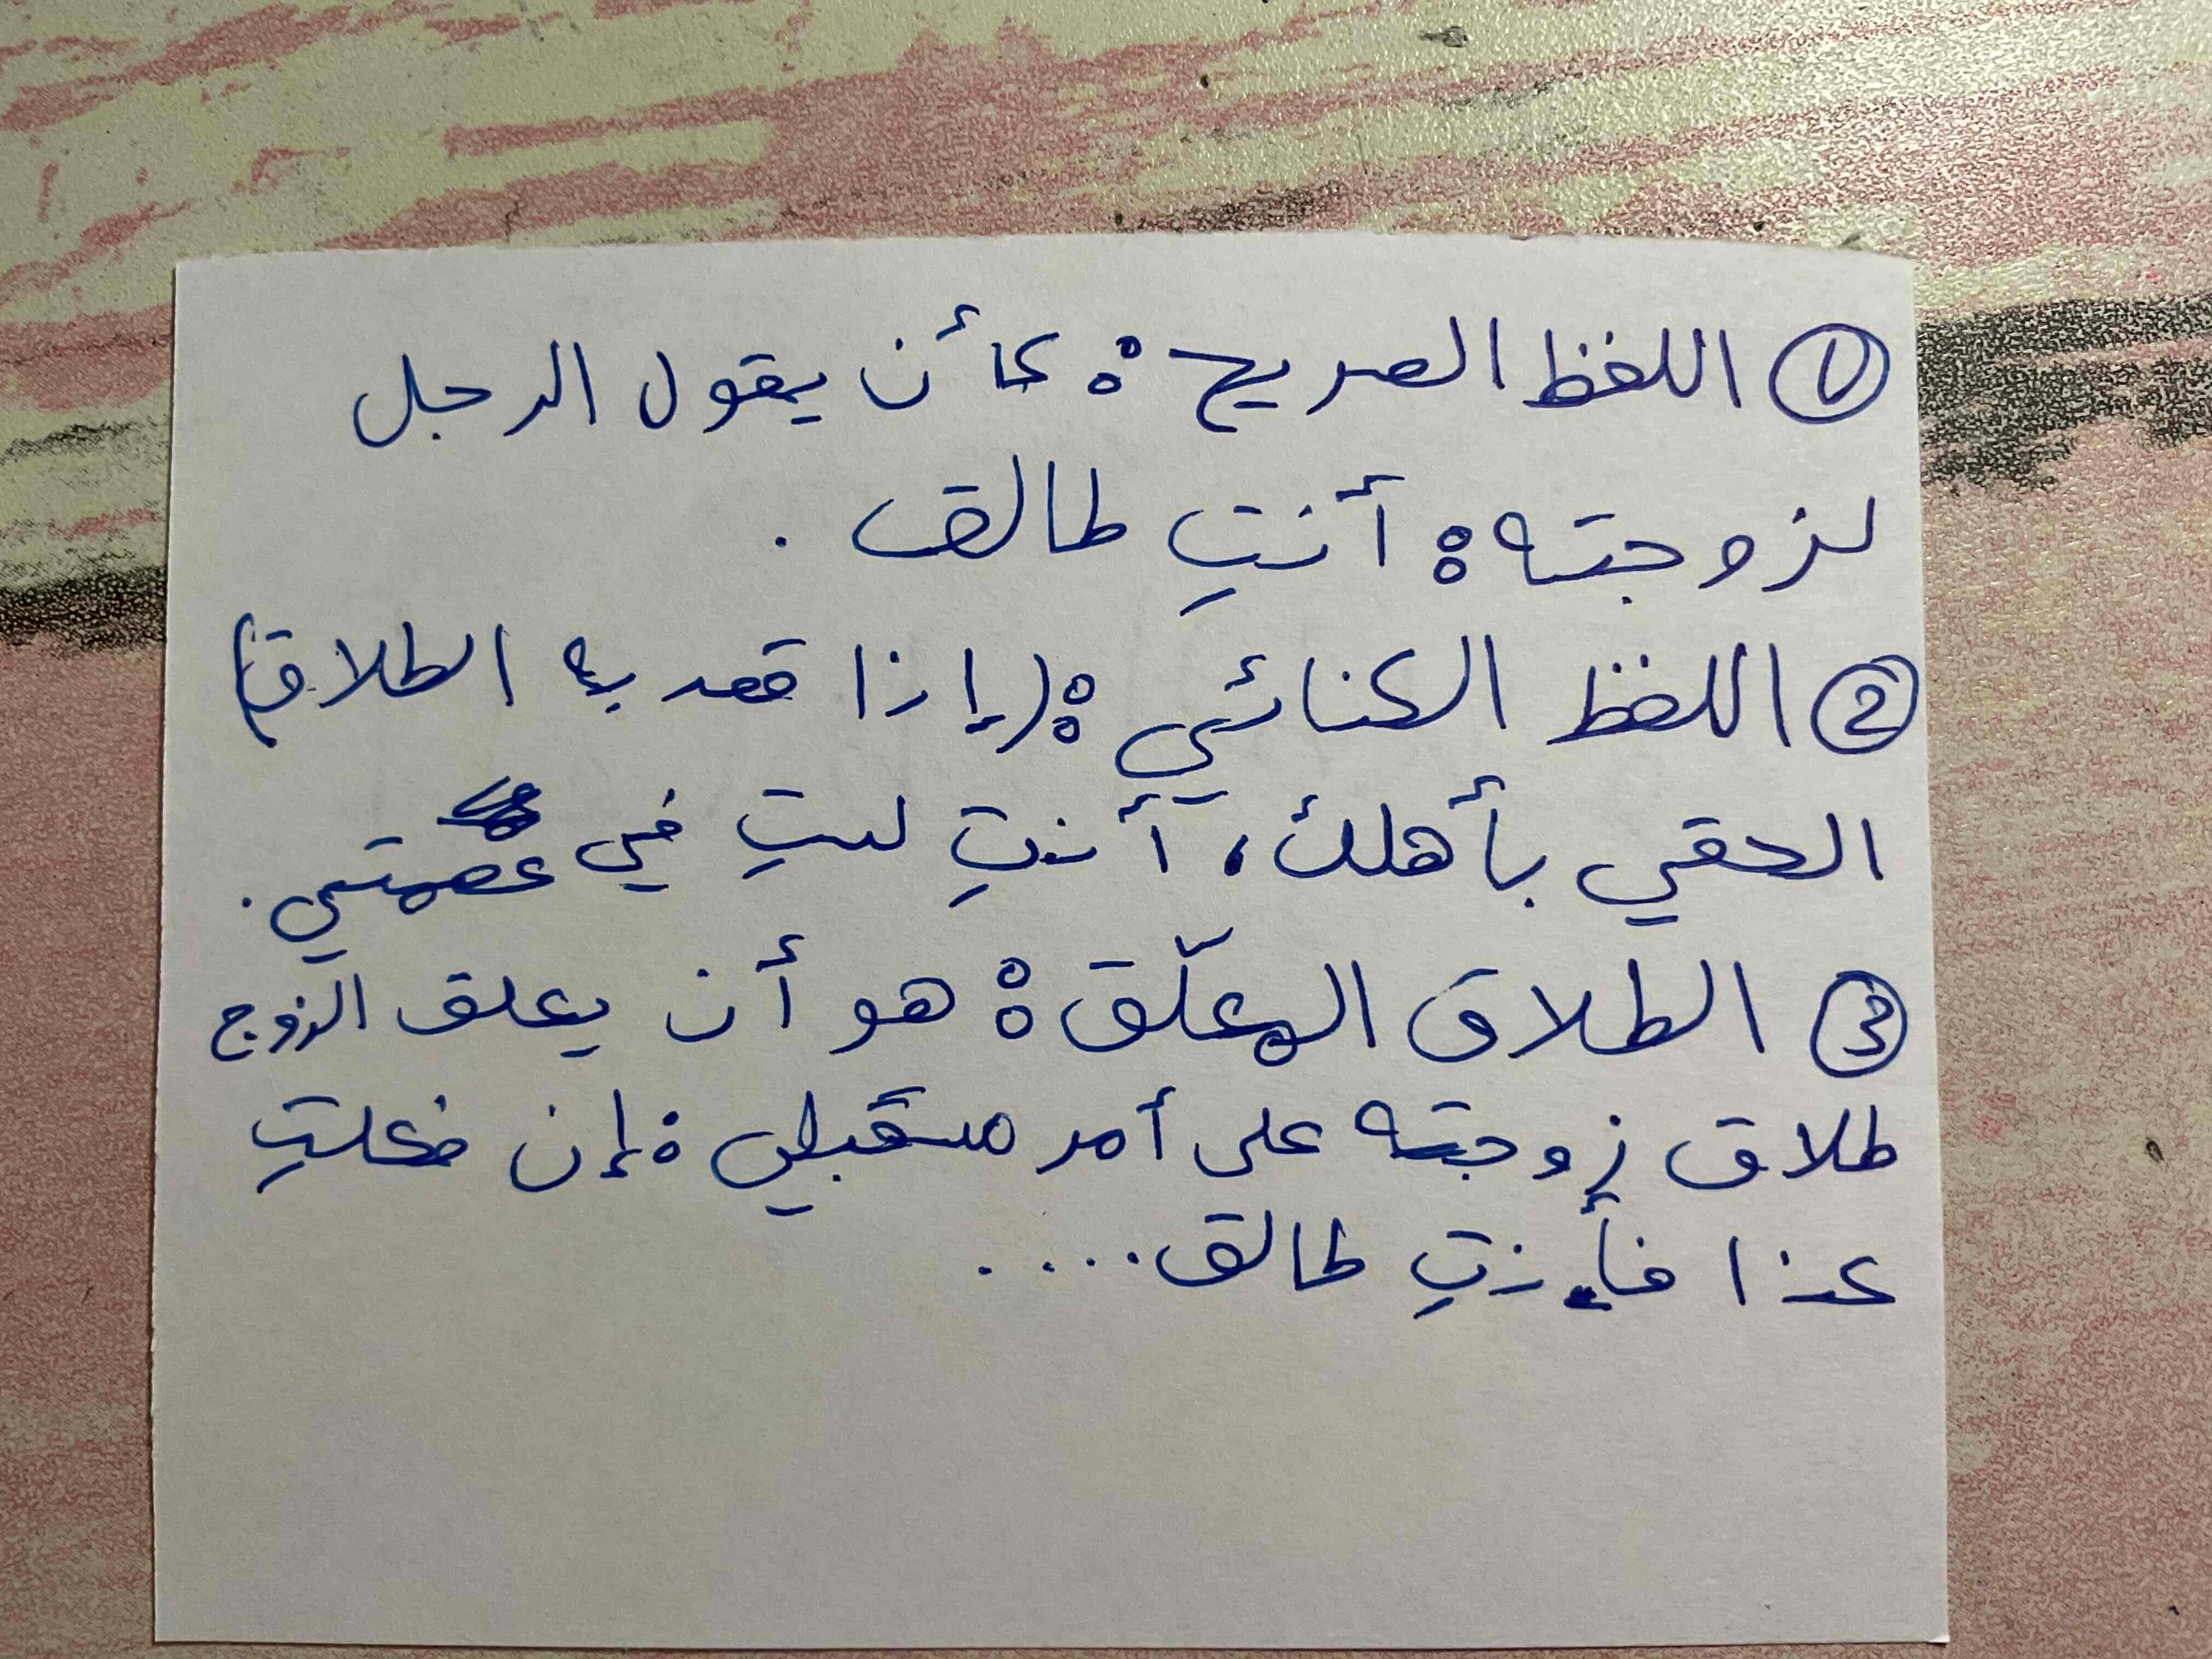 ① اللفظ الصريح: كأن يقول الرجل
لزوجته: أنتِ طالق.
② اللفظ الكنائي: (إذا قصد به الطلاق)
الحقي بأهلك، أنتِ لستِ في عصمتي.
③ الطلاق المعلّق: هو أن يعلق الزوج
طلاق زوجته على أمر مستقبلي: إن فعلتِ
كذا فأنتِ طالق....